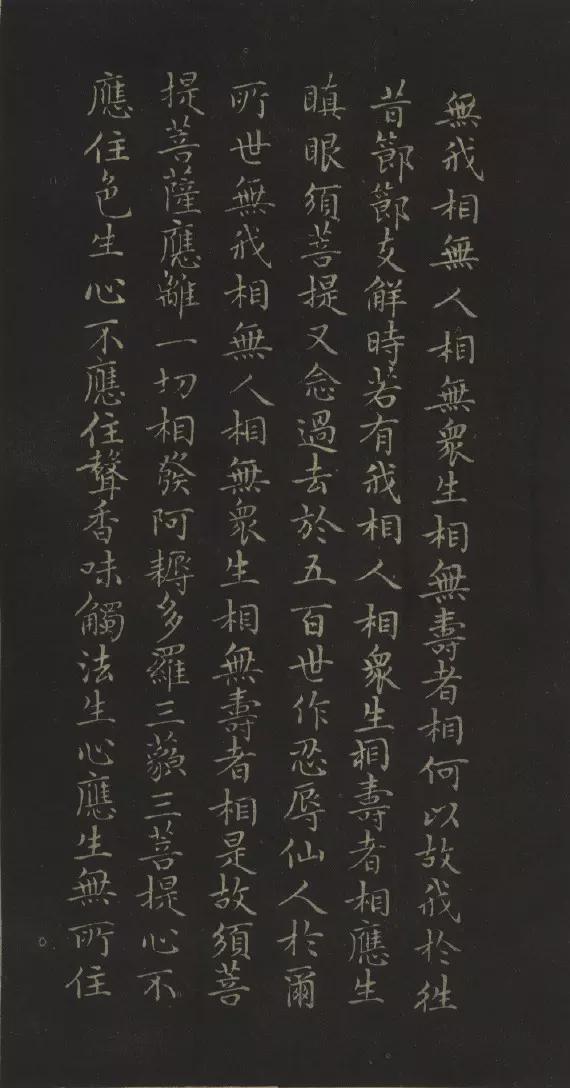 無我相無人相無衆生相無壽者相何以故我於徃
昔節節支解時若有我相人相衆生相壽者相應生
瞋眼須菩提又念過去於五百世作忍辱仙人於爾
所世無我相無人相無衆生相無壽者相是故須菩
提菩薩應離一切相發阿耨多羅三藐三菩提心不
應住色生心不應住聲香味觸法生心應生無所住